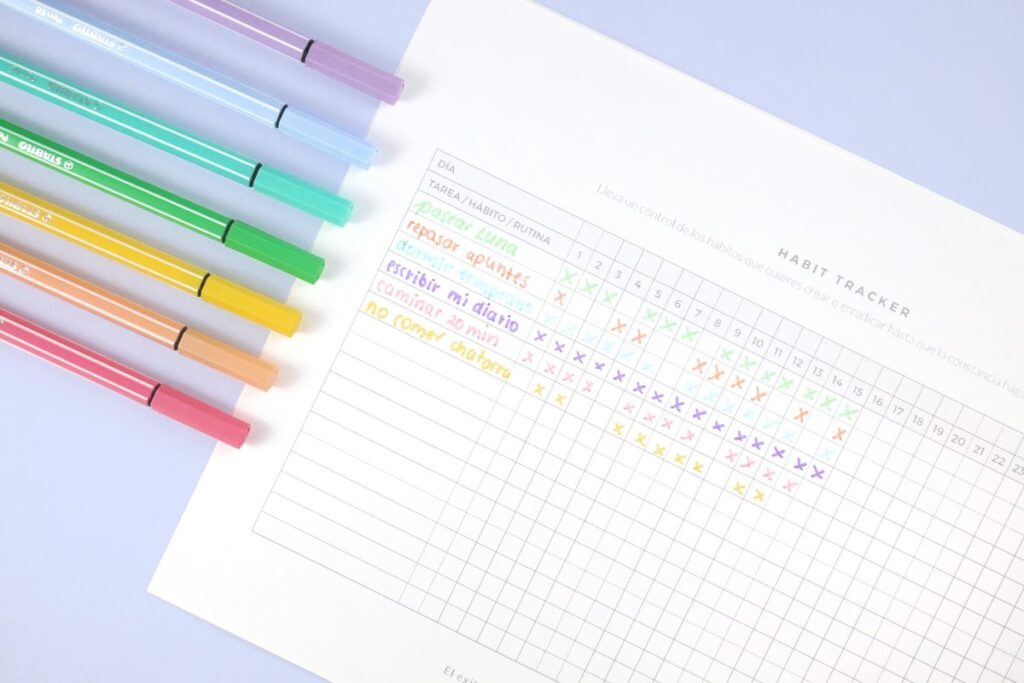 HABIT TRACKER
Lleva un control de los hábitos que quieres crear o erradicar hasta que la constancia
DÍA
TAREA / HÁBITO / RUTINA 1 2 3 4 5 6 7 8 9 10 11 12 13 14 15 16 17 18 19 20 21 22 23
pasear Luna X X X X X X X X X X X X X
repasar apuntes X X X X X X X X X
dormir temprano
escribir mi diario X X X X X X X X X X X X X X X
caminar 20 min X X X X X X X X X X X X
no comer chatarra X X X X X X X X X
El
STABILO
STABILO
STABILO